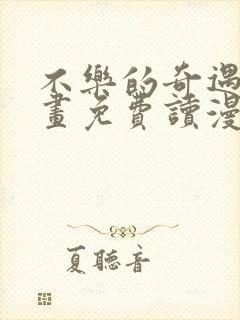 不樂的奇遇
畫免費讀漫
夏聽音